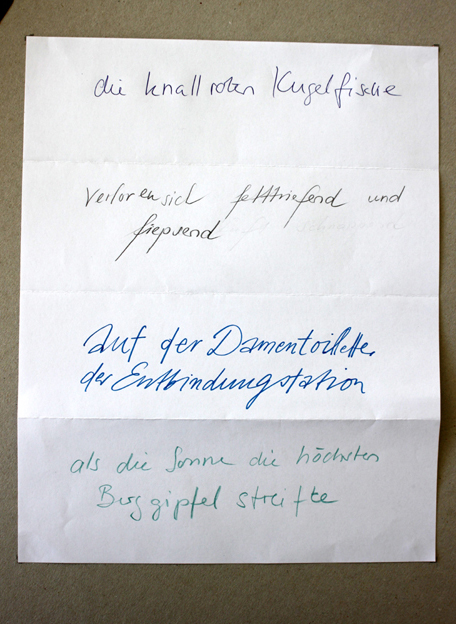 die knallroten Kugelfische
verloren sich fetttriefend und
fiepsend
auf der Damentoilette
der Entbindungstation
als die Sonne die höchsten
Berggipfel streifte